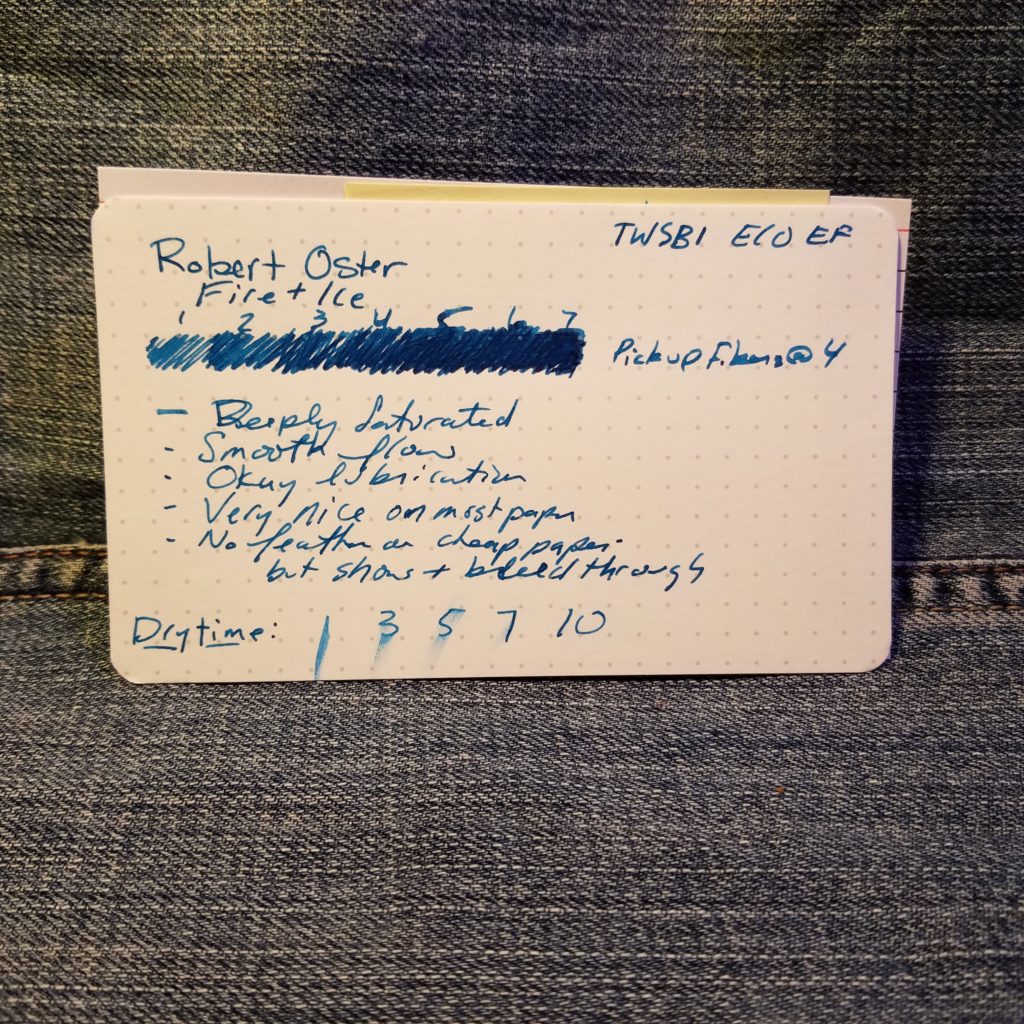 TWSBI ECO EF
Robert Oster
Fire + Ice
1 2 3 4 5 6 7
Pick up fibers @ 4
- Deeply Saturated
- Smooth flow
- Okay lubrication
- Very nice on most paper
- No feather on cheap paper.
but shows + bleed through
Drytime: 1 3 5 7 10